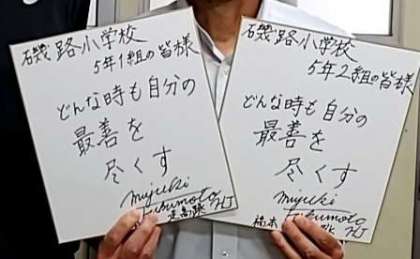 磯路小学校
5年1組の皆様
どんな時も自分の
最善を
尽くす
miyuki
Fukumoto
磯路小学校
5年2組の皆様
どんな時も自分の
最善を
尽くす
miyuki
Fukumoto